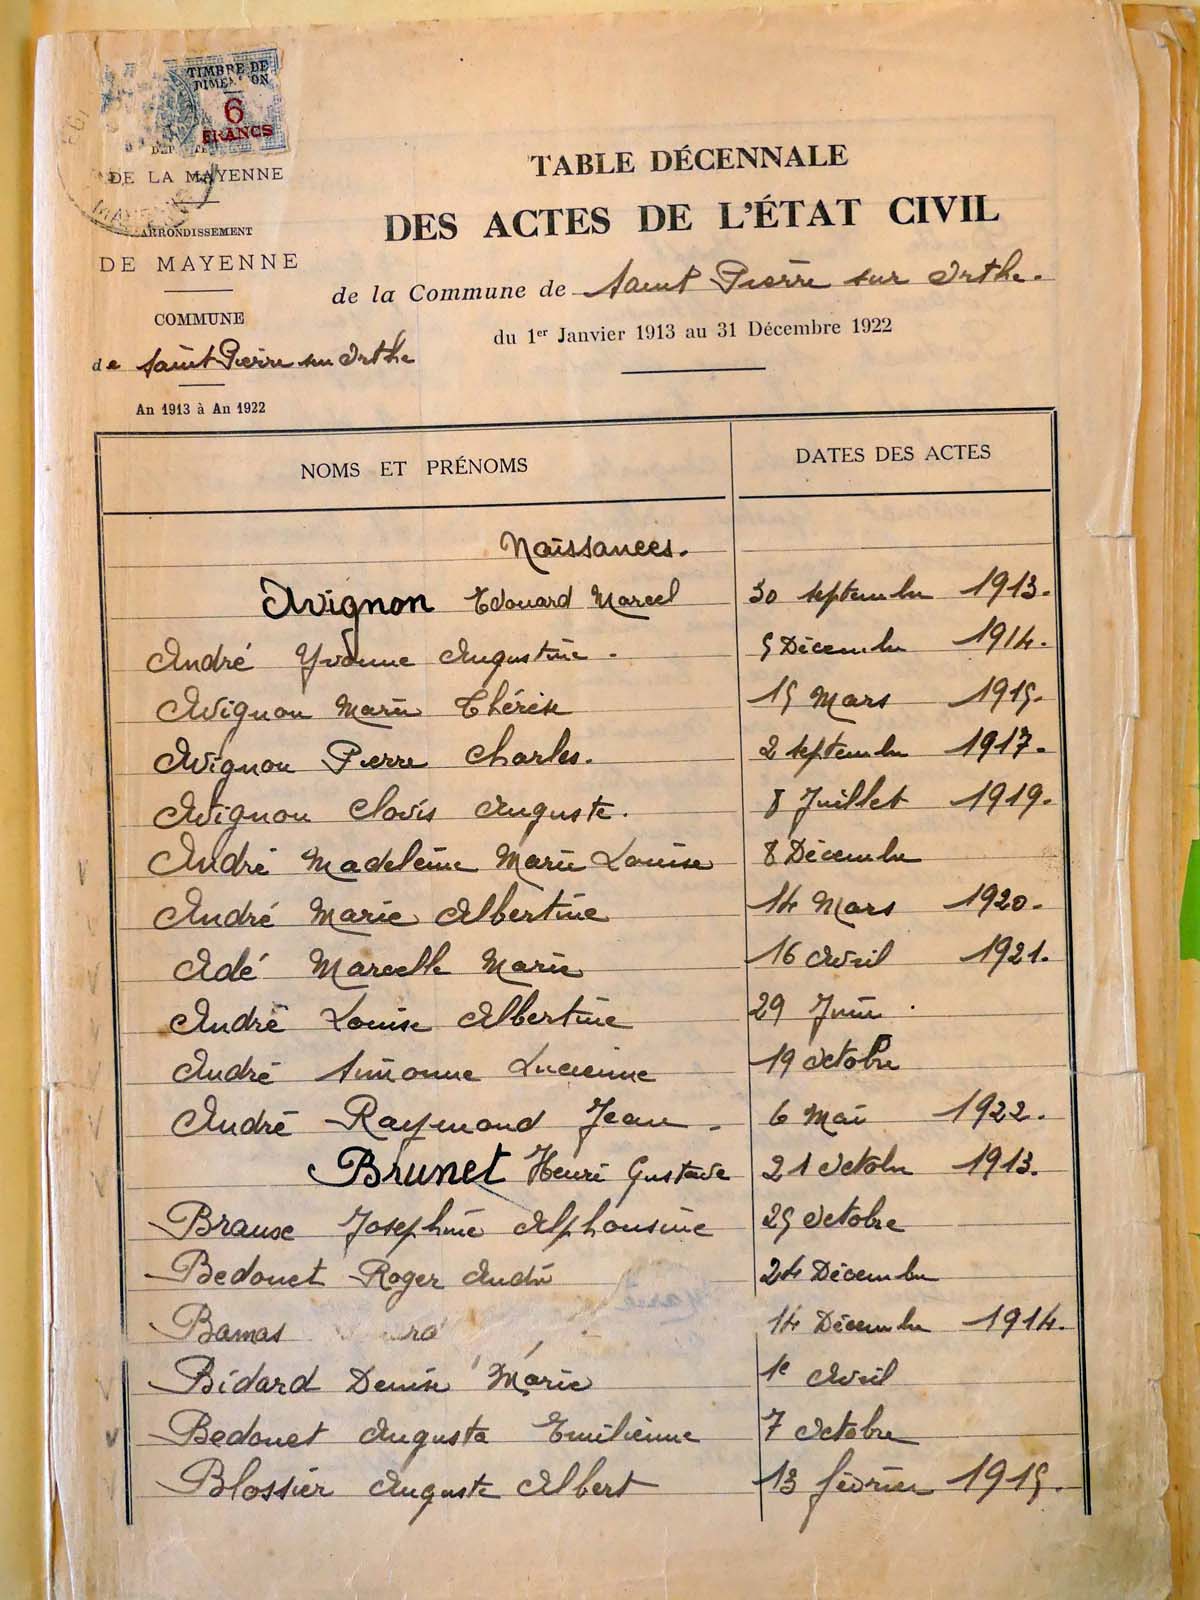 TIMBRE DE
DIMENSION
6
FRANCS
DE LA MAYENNE
ARRONDISSEMENT
DE MAYENNE
COMMUNE
de Saint Pierre sur Orthe
An 1913 à An 1922
TABLE DÉCENNALE
DES ACTES DE L'ÉTAT CIVIL
de la Commune de Saint Pierre sur Orthe.
du 1er Janvier 1913 au 31 Décembre 1922
NOMS ET PRÉNOMS DATES DES ACTES
Naissances.
Avignon Edouard Marcel 30 septembre 1913.
André Yvonne Augustine. 5 Décembre 1914.
Avignon Marie Thérèse 15 Mars 1915.
Avignon Pierre Charles. 2 septembre 1917.
Avignon Clovis Auguste. 8 Juillet 1919.
André Madeleine Marie Louise 8 Décembre
André Marie Albertine 14 Mars 1920.
Adé Marcelle Marie 16 Avril 1921.
André Louise Albertine 29 Juin.
André Simonne Lucienne 19 Octobre
André Raymond Jean. 6 Mai 1922.
Brunet Henri Gustave 21 Octobre 1913.
Brause Josephine Alphonsine 25 Octobre
Bedouet Roger André 24 Décembre
Bamas 14 Décembre 1914.
Bidard Denise Marie 1e Avril
Bedouet Augusta Emilienne 7 Octobre
Blossier Auguste Albert 13 février 1915.